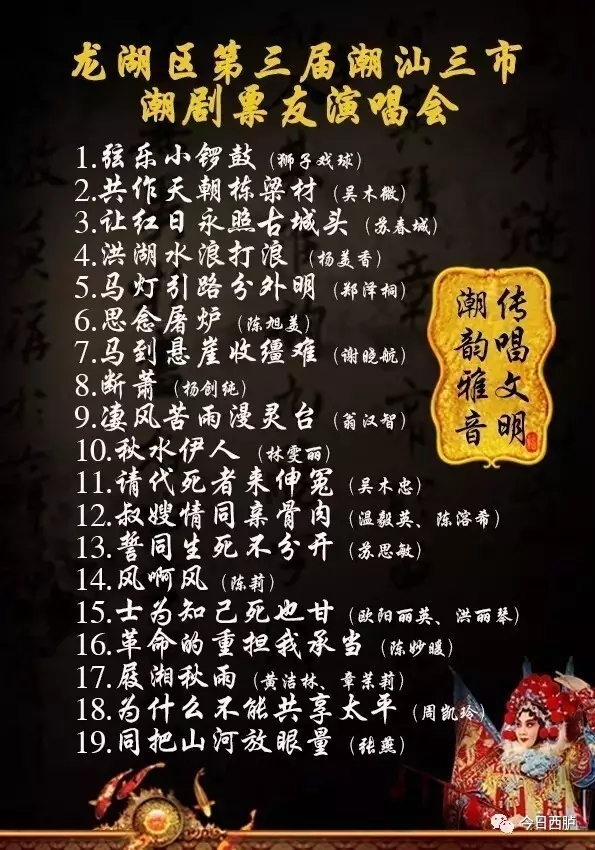 龙湖区第三届潮汕三市
潮剧票友演唱会
1.弦乐小锣鼓（狮子戏球）
2.共作天朝栋梁材（吴木微）
3.让红日永照古城头（苏春城）
4.洪湖水浪打浪（杨美香）
5.马灯引路分外明（郑泽桐）
6.思念屠炉（陈旭美）
7.马到悬崖收缰难（谢晓航）
8.断萧（杨创纯）
9.凄风苦雨漫灵台（翁汉智）
10.秋水伊人（林雯丽）
11.请代死者来伸冤（吴木忠）
12.叔嫂情同亲骨肉（温毅英、陈溶希）
13.誓同生死不分开（苏思敏）
14.风啊风（陈莉）
15.士为知己死也甘（欧阳丽英、洪丽琴）
16.革命的重担我承当（陈妙暖）
17.屐湘秋雨（黄洁林、章茉莉）
18.为什么不能共享太平（周凯玲）
19.同把山河放眼量（张燕）
传唱文明
潮韵雅音
今日西胪